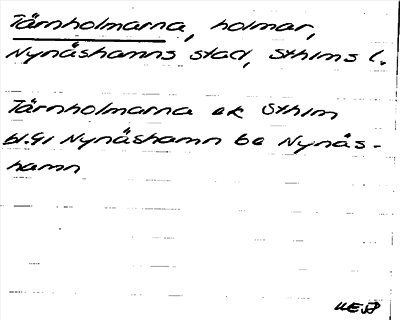 Tärnholmarna, holmar,
Nynäshamns stad, Sthlms l.
Tärnholmarna ek Sthlm
bl.91 Nynäshamn be Nynäs-
hamn